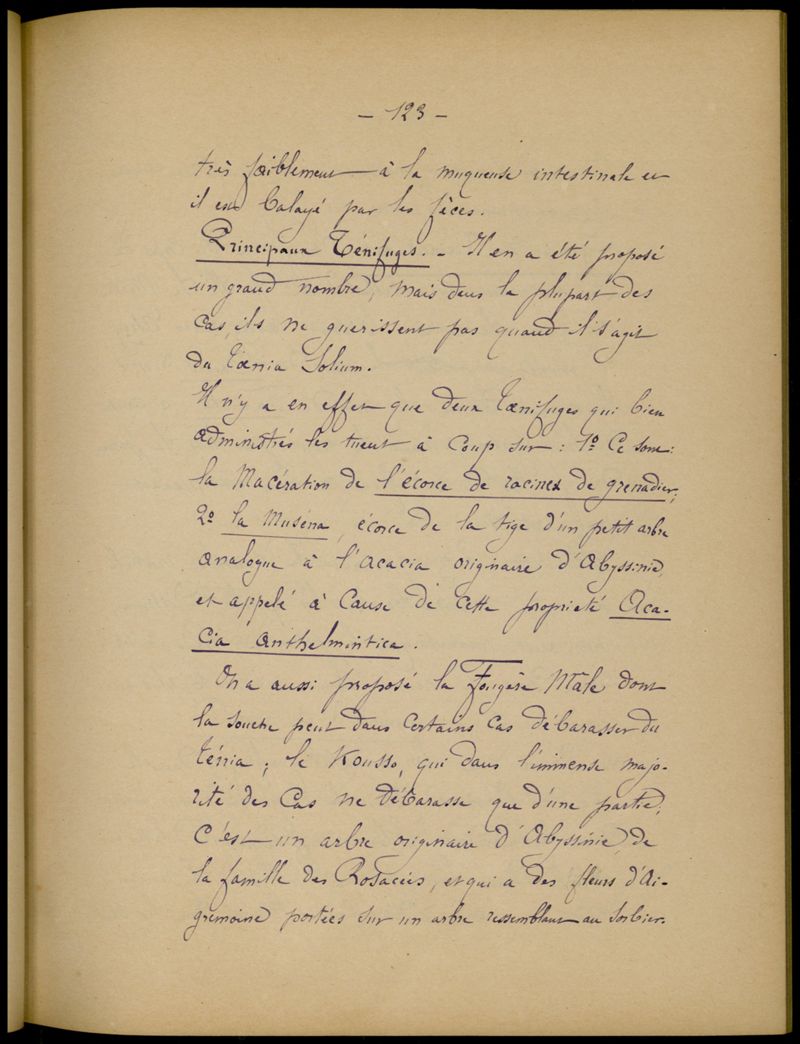 – 123 –
très faiblement à la muqueuse intestinale et
il est balayé par les fèces.
Principaux Ténifuges. - Il en a été proposé
un grand nombre, mais dans la plupart des
cas, ils ne guerissent pas quand il s'agit
du Tœnia Solium.
Il n'y a en effet que deux Tœnifuges qui bien
administrés les tuent à coup sur : 1º Ce sont :
la Macération de l'écorce de racines de grenadier;
2º la Muséna, écorce de la tige d'un petit arbre
analogue à l'acacia originaire d'Abyssinie,
et appelé à cause de cette propriété Aca-
cia anthelmintica.
On a aussi proposé la Fougère Mâle dont
la souche peut dans certains cas débarasser du
ténia ; le Kousso, qui dans l'immense majo-
rité des cas ne débarasse que d'une partie.
C'est un arbre originaire d'Abyssinie, de
la famille des Rosacées, et qui a des fleurs d'Ai-
gremoine portées sur un arbre ressemblant au Sorbier.